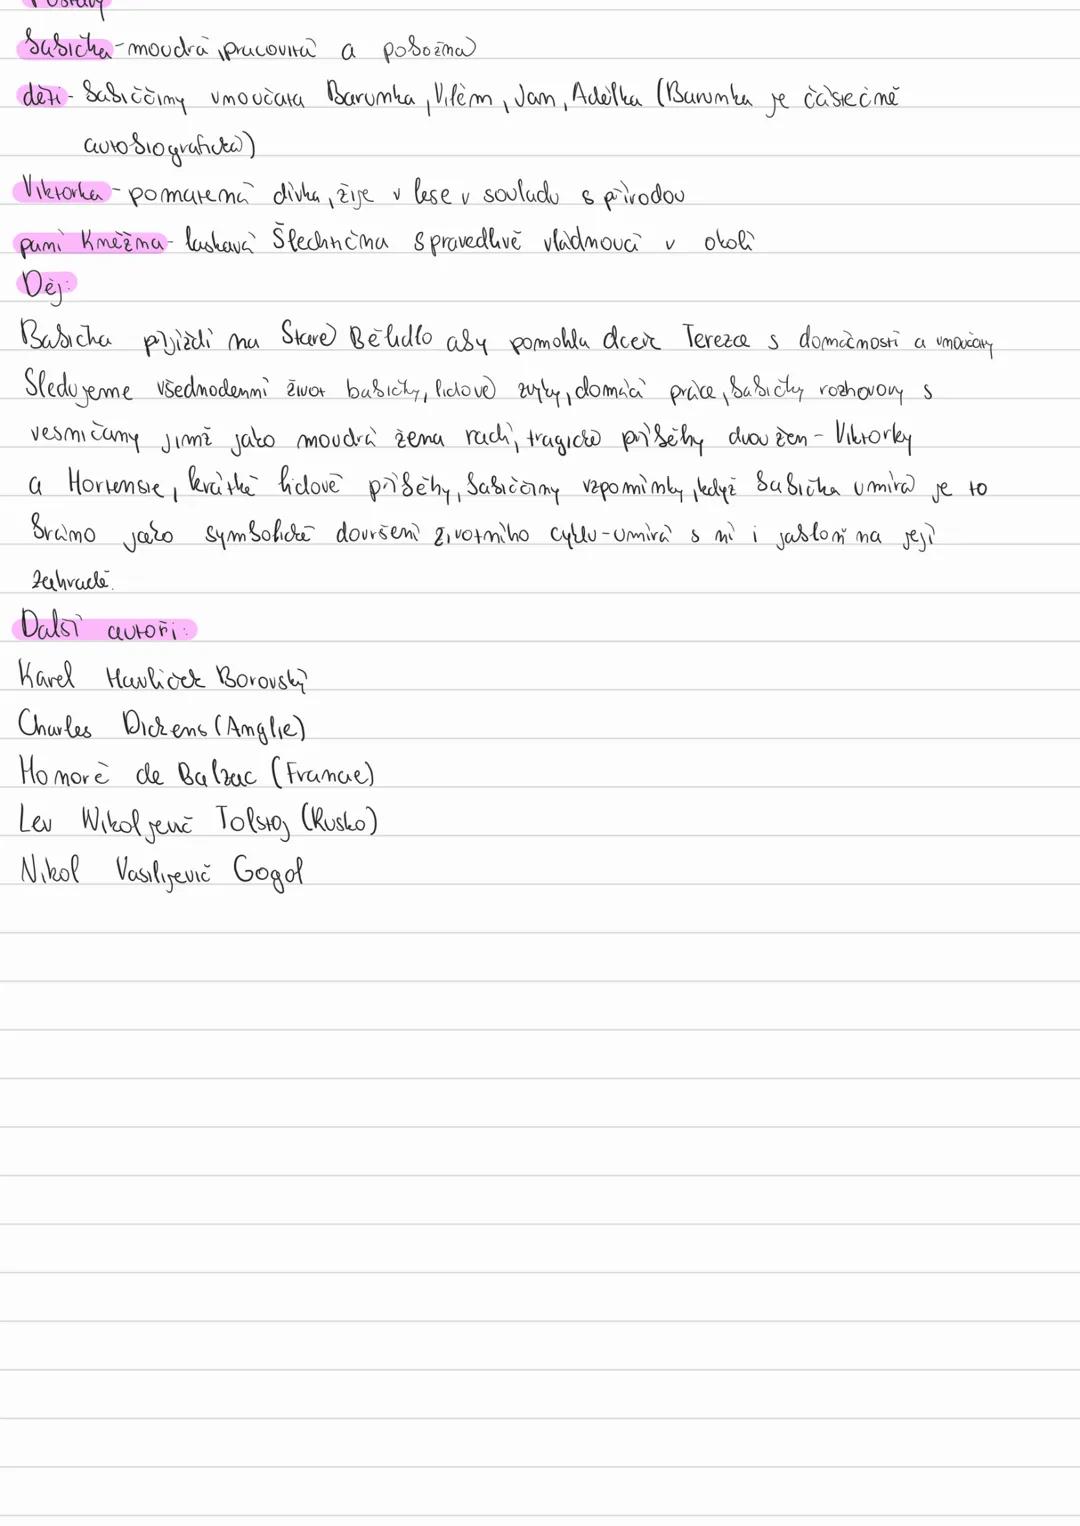 Postavy
babička - moudrá, pracovitá a pobožná
děti - babiččiny vnoučata Barunka, Vilém, Jan, Adélka (Barunka je částečně
autobiografická)
Viktorka - pomatená dívka, žije v lese v souladu s přírodou
paní Kněžna - laskavá šlechtična spravedlivě vládnoucí v okolí
Děj:
Babička přijíždí na Staré Bělidlo aby pomohla dceři Terezce s domácností a vnoučaty
Sledujeme všednodenní život babičky, lidové zvyky, domácí práce, babičky rozhovory s
vesničany jimž jako moudrá žena radí, tragické příběhy dvou žen - Viktorky
a Hortensie, krátké lidové příběhy, babiččiny vzpomínky, když babička umírá je to
bráno jako symbolické dovršení životního cyklu - umírá s ní i jabloň na její
zahradě.
Další autoři:
Karel Havlíček Borovský
Charles Dickens (Anglie)
Honoré de Balzac (Francie)
Lev Nikoljevič Tolstoj (Rusko)
Nikol Vasilijevič Gogol